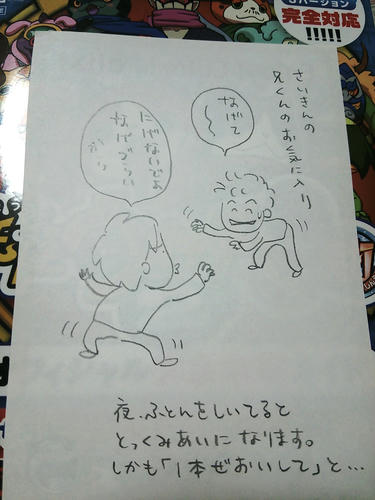 バージョン
完全対応
!!!!!
さいきんの
兄くんのお気に入り
なげて
〜
にげないでよ
なげづらい
から
夜、ふとんをしいてると
とっくみあいになります。
しかも「1本ぜおいして」と…